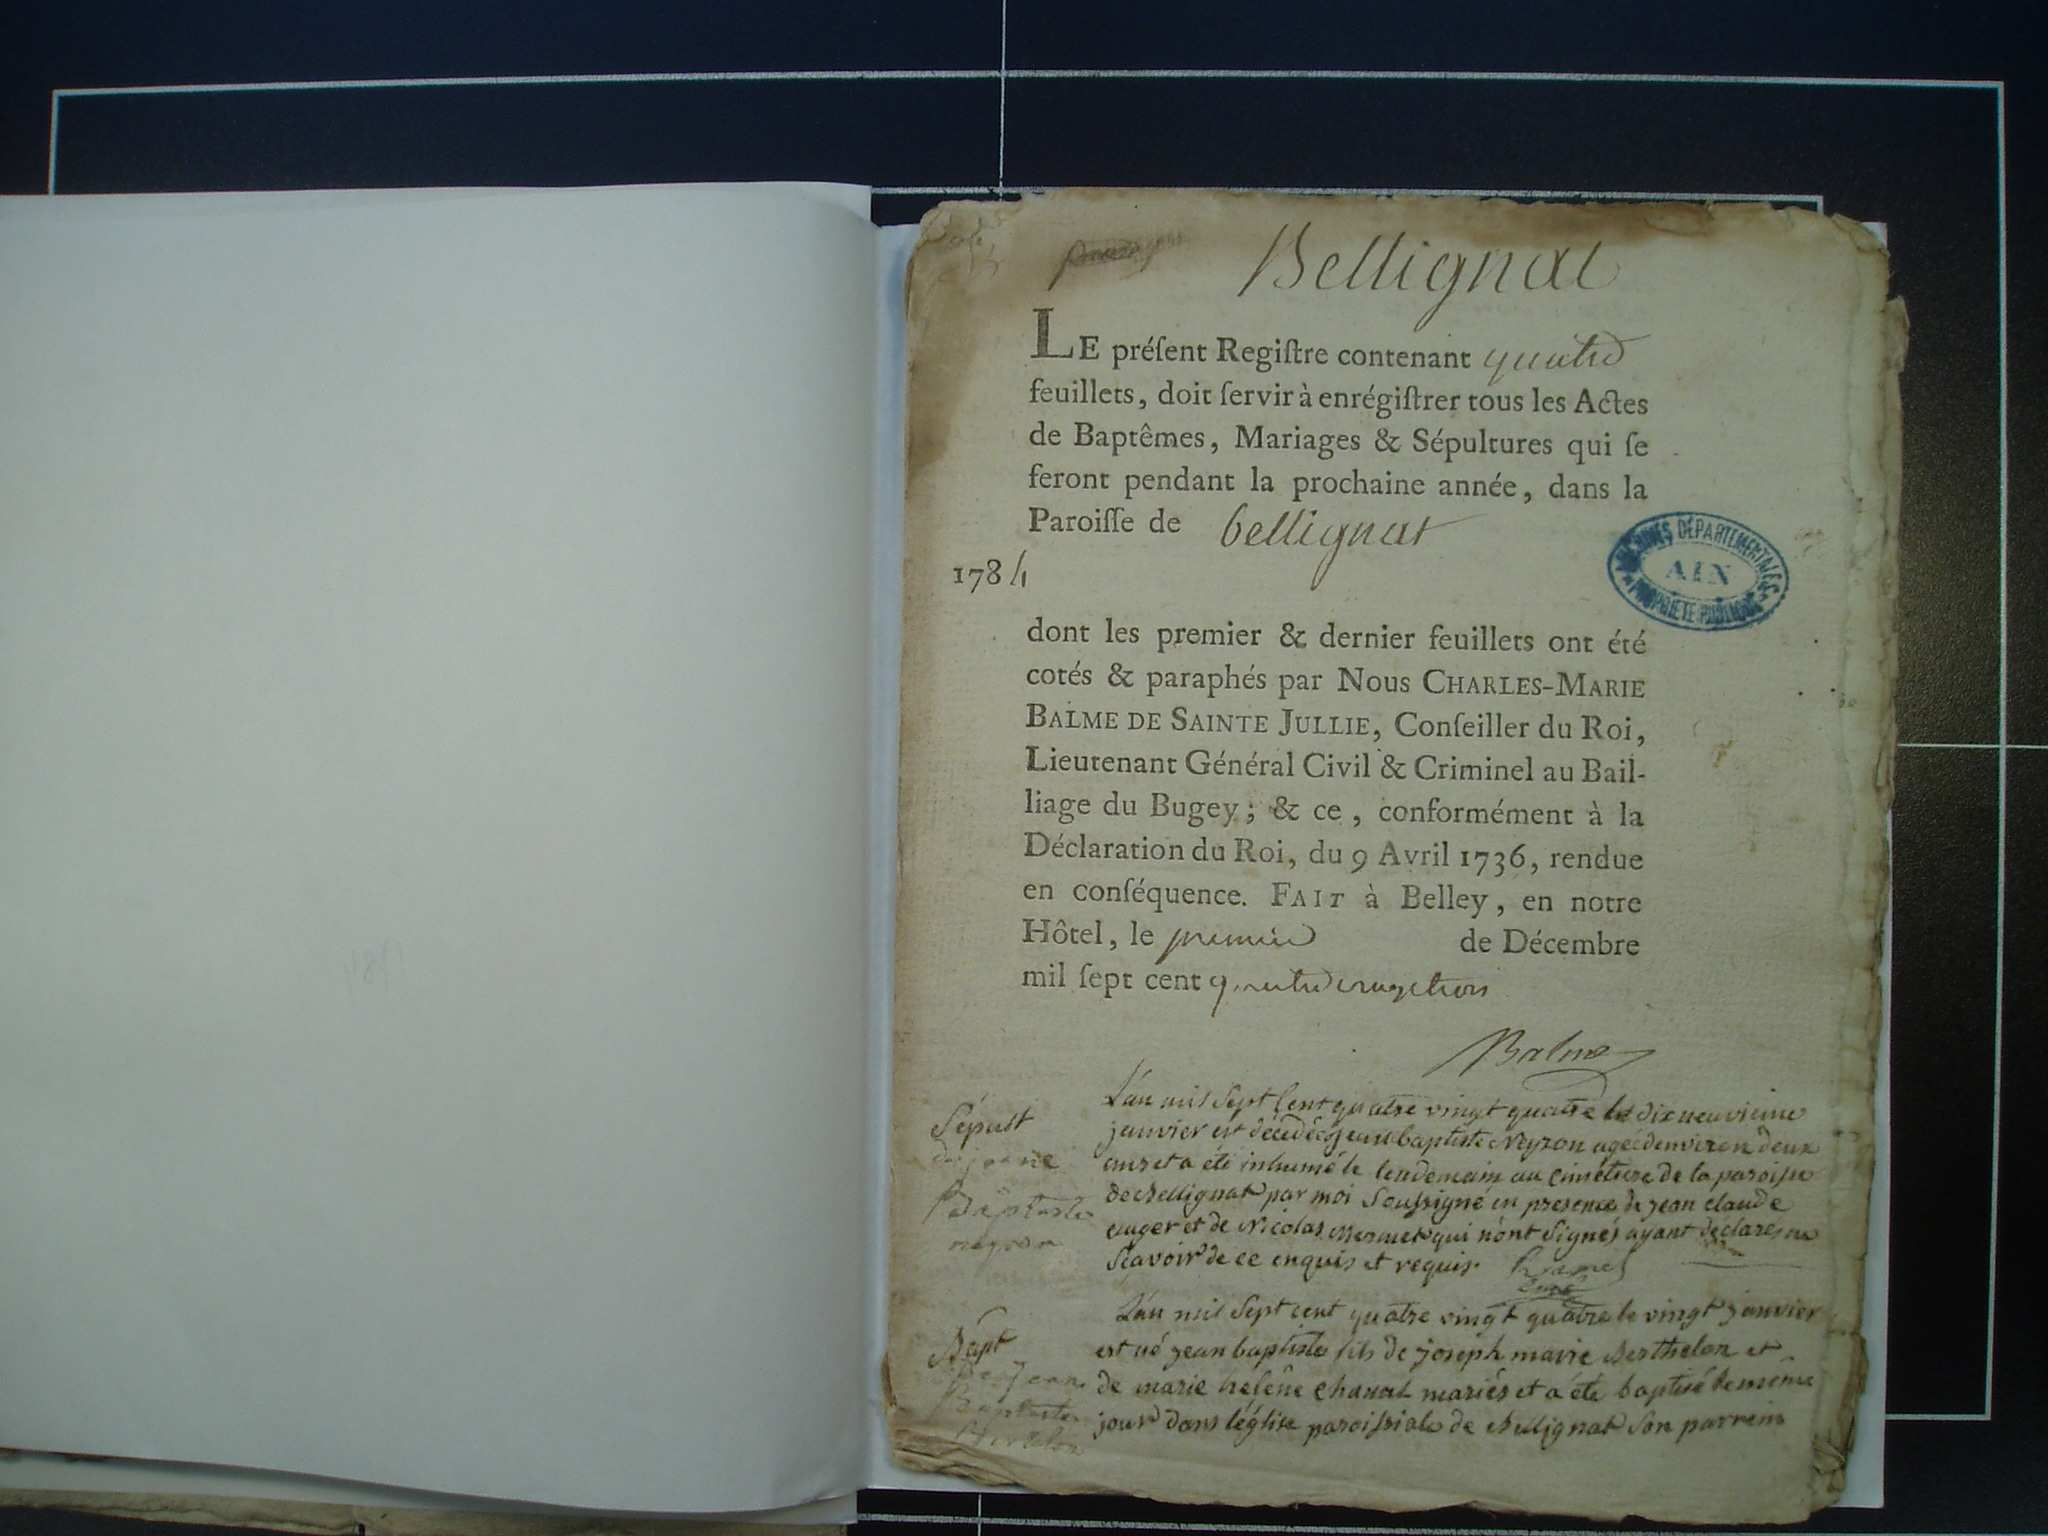 Bellignat
LE préſent Regiſtre contenant quatre
feuillets, doit ſervir à enrégiſtrer tous les Actes
de Baptêmes, Mariages & Sépultures qui ſe
feront pendant la prochaine année, dans la
Paroiſſe de bellignat
1784
ARCHIVES DÉPARTEMENTALES
AIN
PROPRIÉTÉ PUBLIQUE
dont les premier & dernier feuillets ont été
cotés & paraphés par Nous CHARLES-MARIE
BALME DE SAINTE JULLIE, Conſeiller du Roi,
Lieutenant Général Civil & Criminel au Bail-
liage du Bugey; & ce, conformément à la
Déclaration du Roi, du 9 Avril 1736, rendue
en conſéquence. FAIT à Belley, en notre
Hôtel, le premier de Décembre
mil ſept cent quatre vingt trois
Balme
Sépult
de jeane
Baptiste
neyron
L'an mil Sept Cent quatre vingt quatre le dix neuvieme
janvier est décédé jean baptiste Neyron agé denviron deux
ans et a été inhumé le lendemain au cimetiere de la paroisse
de Bellignat par moi Soussigné en presence de jean claude
et de Nicolas Mermet qui n'ont Signés ayant declarés ne
Scavoir de ce enquis et requis
Bapt
de jean
Baptiste
Bertelon
L'an mil Sept cent quatre vingt quatre le vingt janvier
est né jean baptiste fils de joseph marie Berthelon et
de marie helêne Chanal mariés et a été baptisé le même
jour dans l'église paroissiale de Bellignat Son parrein